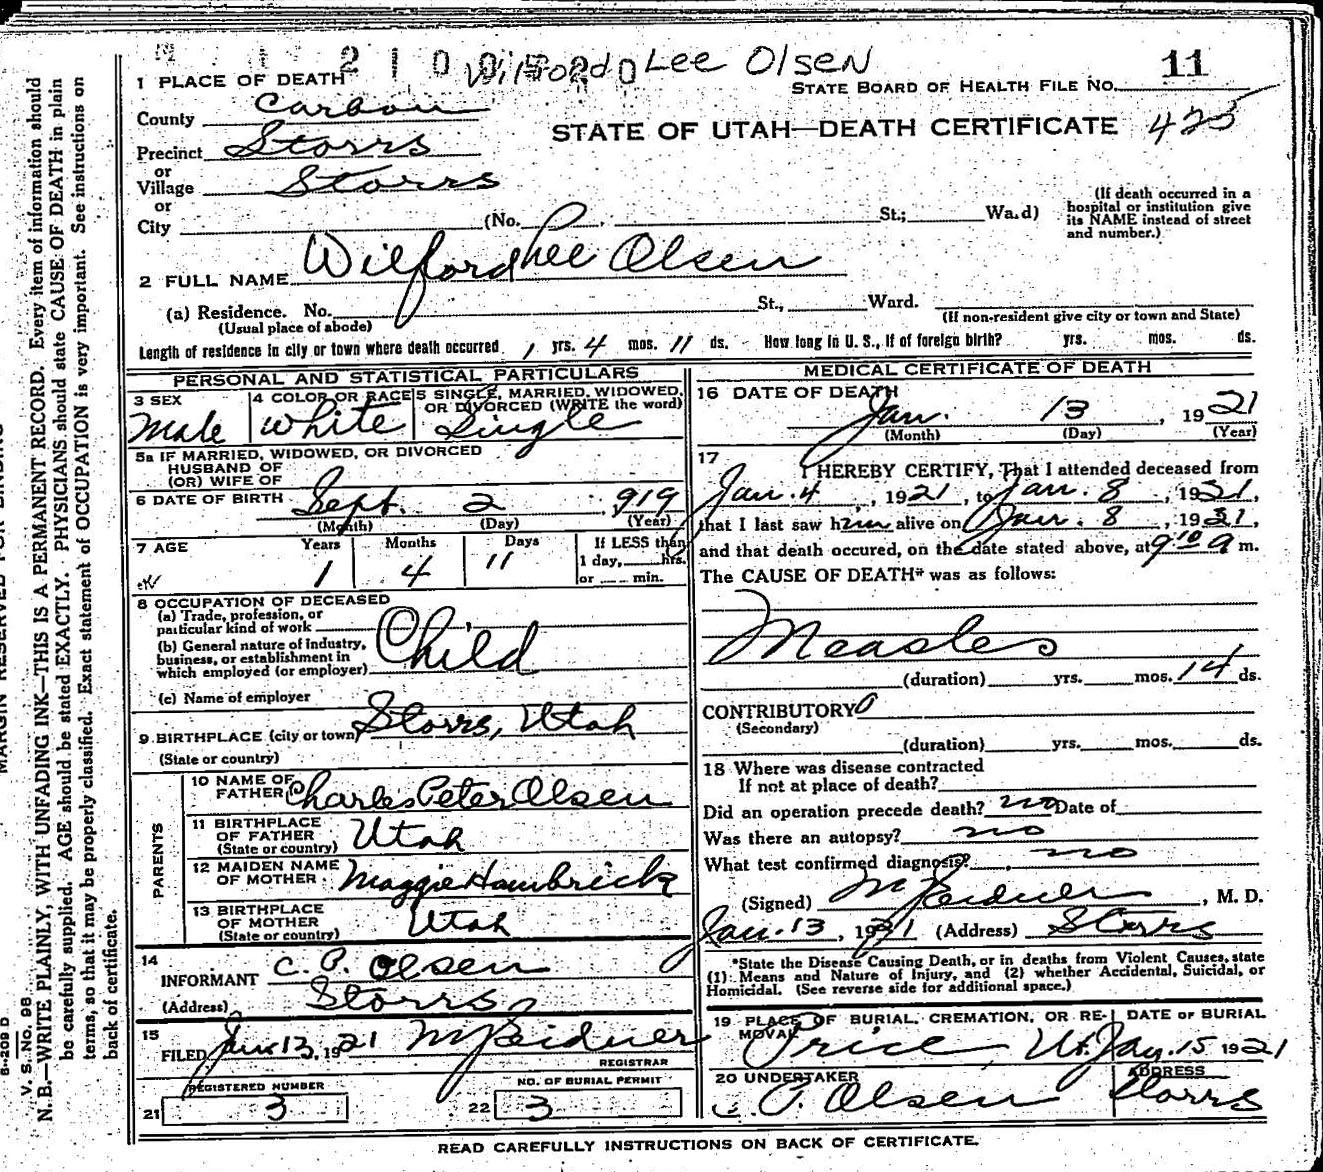 2 1 0 0 Wilford Lee Olsen
11
1 PLACE OF DEATH
STATE BOARD OF HEALTH FILE NO.
County Carbon
STATE OF UTAH—DEATH CERTIFICATE 425
Precinct Storrs
or
Village Storrs
or
City (No. St.; Ward)
(If death occurred in a
hospital or institution give
its NAME instead of street
and number.)
2 FULL NAME Wilford Lee Olsen
(a) Residence. No. St., Ward.
(Usual place of abode)
(If non-resident give city or town and State)
Length of residence in city or town where death occurred 1 yrs. 4 mos. 11 ds. How long in U. S., if of foreign birth? yrs. mos. ds.
PERSONAL AND STATISTICAL PARTICULARS
3 SEX
Male
4 COLOR OR RACE
White
5 SINGLE, MARRIED, WIDOWED,
OR DIVORCED (WRITE the word)
Single
5a IF MARRIED, WIDOWED, OR DIVORCED
HUSBAND OF
(OR) WIFE OF
6 DATE OF BIRTH Sept. 2, 919
(Month) (Day) (Year)
7 AGE Years Months Days If LESS than
1 day, hrs.
or min.
1 4 11
8 OCCUPATION OF DECEASED
(a) Trade, profession, or
particular kind of work
(b) General nature of industry,
business, or establishment in
which employed (or employer)
Child
(c) Name of employer
9 BIRTHPLACE (city or town) Storrs, Utah
(State or country)
PARENTS
10 NAME OF
FATHER Charles Peter Olsen
11 BIRTHPLACE
OF FATHER
(State or country) Utah
12 MAIDEN NAME
OF MOTHER Maggie Hambrick
13 BIRTHPLACE
OF MOTHER
(State or country) Utah
14
INFORMANT C. P. Olsen
(Address) Storrs
15
FILED Jan 13, 1921
REGISTRAR
REGISTERED NUMBER
21 3
NO. OF BURIAL PERMIT
22 3
MEDICAL CERTIFICATE OF DEATH
16 DATE OF DEATH
Jan. 13, 1921
(Month) (Day) (Year)
17
I HEREBY CERTIFY, That I attended deceased from
Jan. 4, 1921, to Jan. 8, 1921,
that I last saw him alive on Jan. 8, 1921,
and that death occured, on the date stated above, at 9 10 a m.
The CAUSE OF DEATH* was as follows:
Measles
(duration) yrs. mos. 14 ds.
CONTRIBUTORY 0
(Secondary)
(duration) yrs. mos. ds.
18 Where was disease contracted
If not at place of death?
Did an operation precede death? no Date of
Was there an autopsy? no
What test confirmed diagnosis? no
(Signed) , M. D.
Jan. 13, 1921 (Address) Storrs
*State the Disease Causing Death, or in deaths from Violent Causes, state
(1) Means and Nature of Injury, and (2) whether Accidental, Suicidal, or
Homicidal. (See reverse side for additional space.)
19 PLACE OF BURIAL, CREMATION, OR RE-
MOVAL
Price, Ut.
DATE OF BURIAL
Jan. 15 1921
20 UNDERTAKER
C. P. Olsen
ADDRESS
Storrs
READ CAREFULLY INSTRUCTIONS ON BACK OF CERTIFICATE.
MARGIN RESERVED FOR BINDING
V. S. No. 98
N. B.—WRITE PLAINLY, WITH UNFADING INK—THIS IS A PERMANENT RECORD. Every item of information should
be carefully supplied. AGE should be stated EXACTLY. PHYSICIANS should state CAUSE OF DEATH in plain
terms, so that it may be properly classified. Exact statement of OCCUPATION is very important. See instructions on
back of certificate.